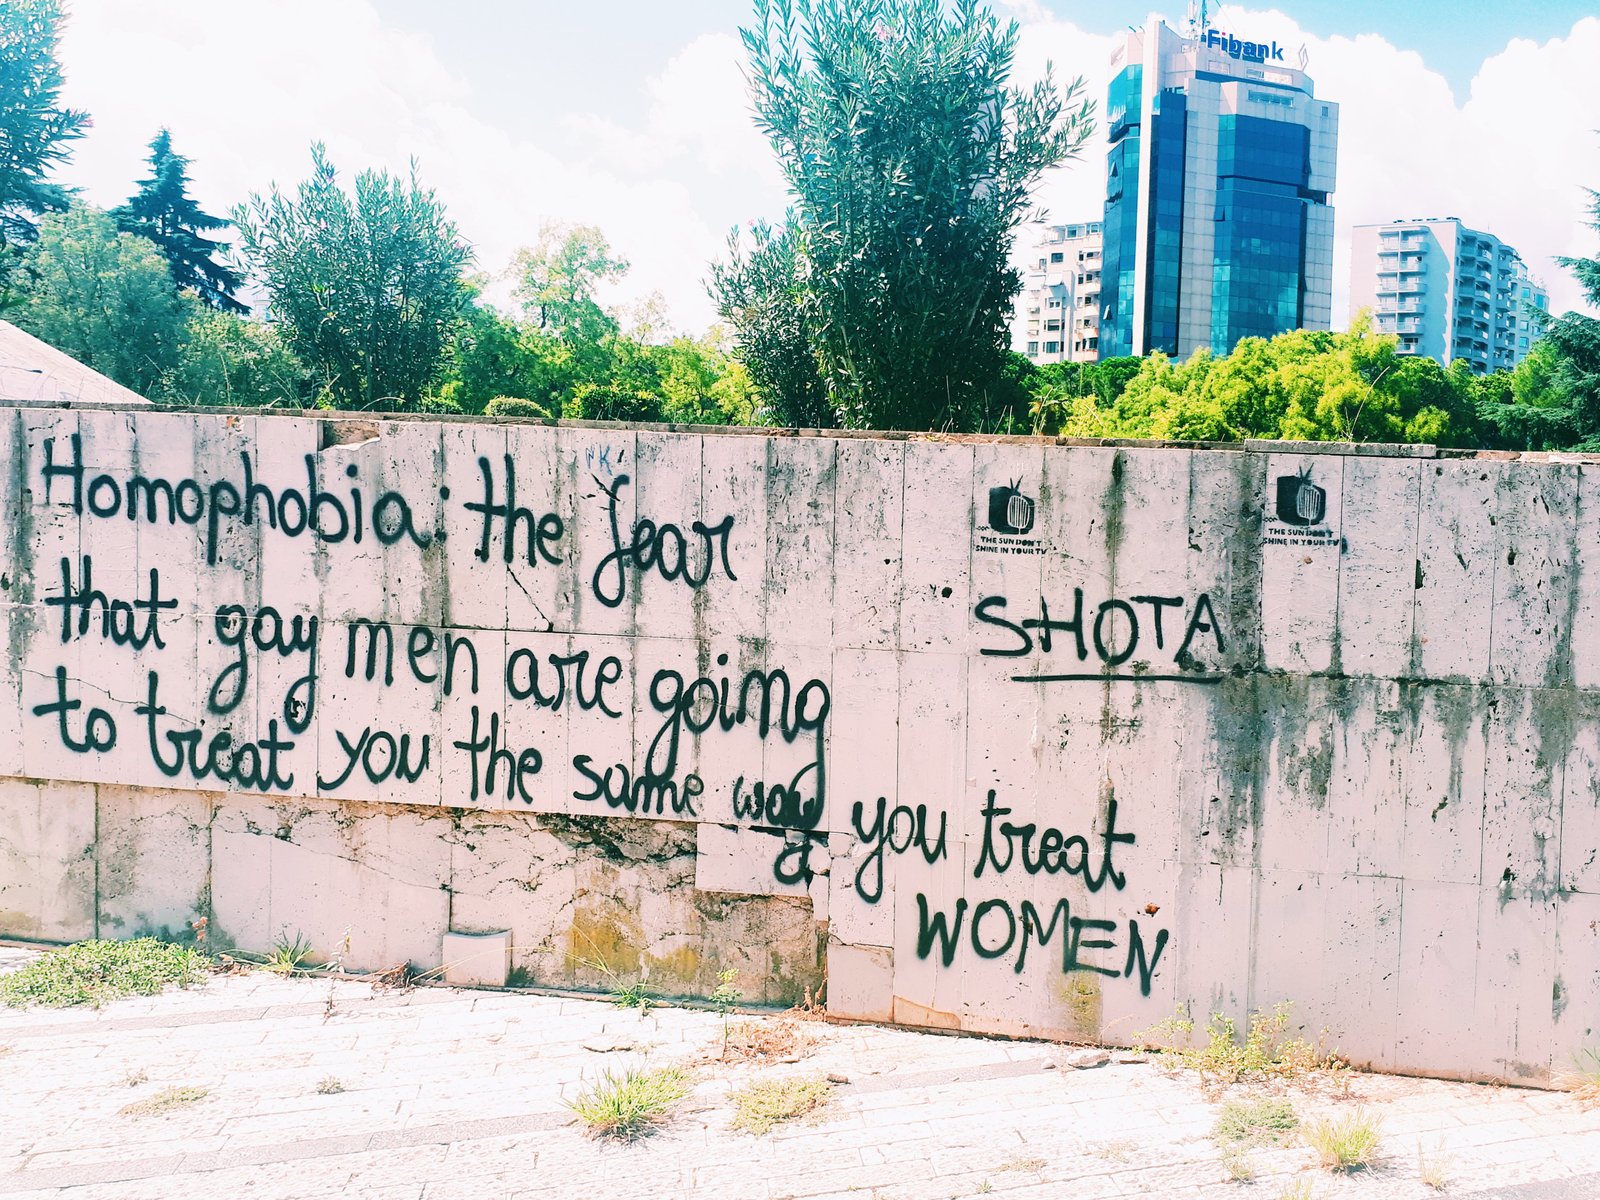 Fibank
Homophobia: the fear
that gay men are going
to treat you the same way
you treat
WOMEN
SHOTA
THE SUN DON'T
SHINE IN YOUR TV
THE SUN DON'T
SHINE IN YOUR TV